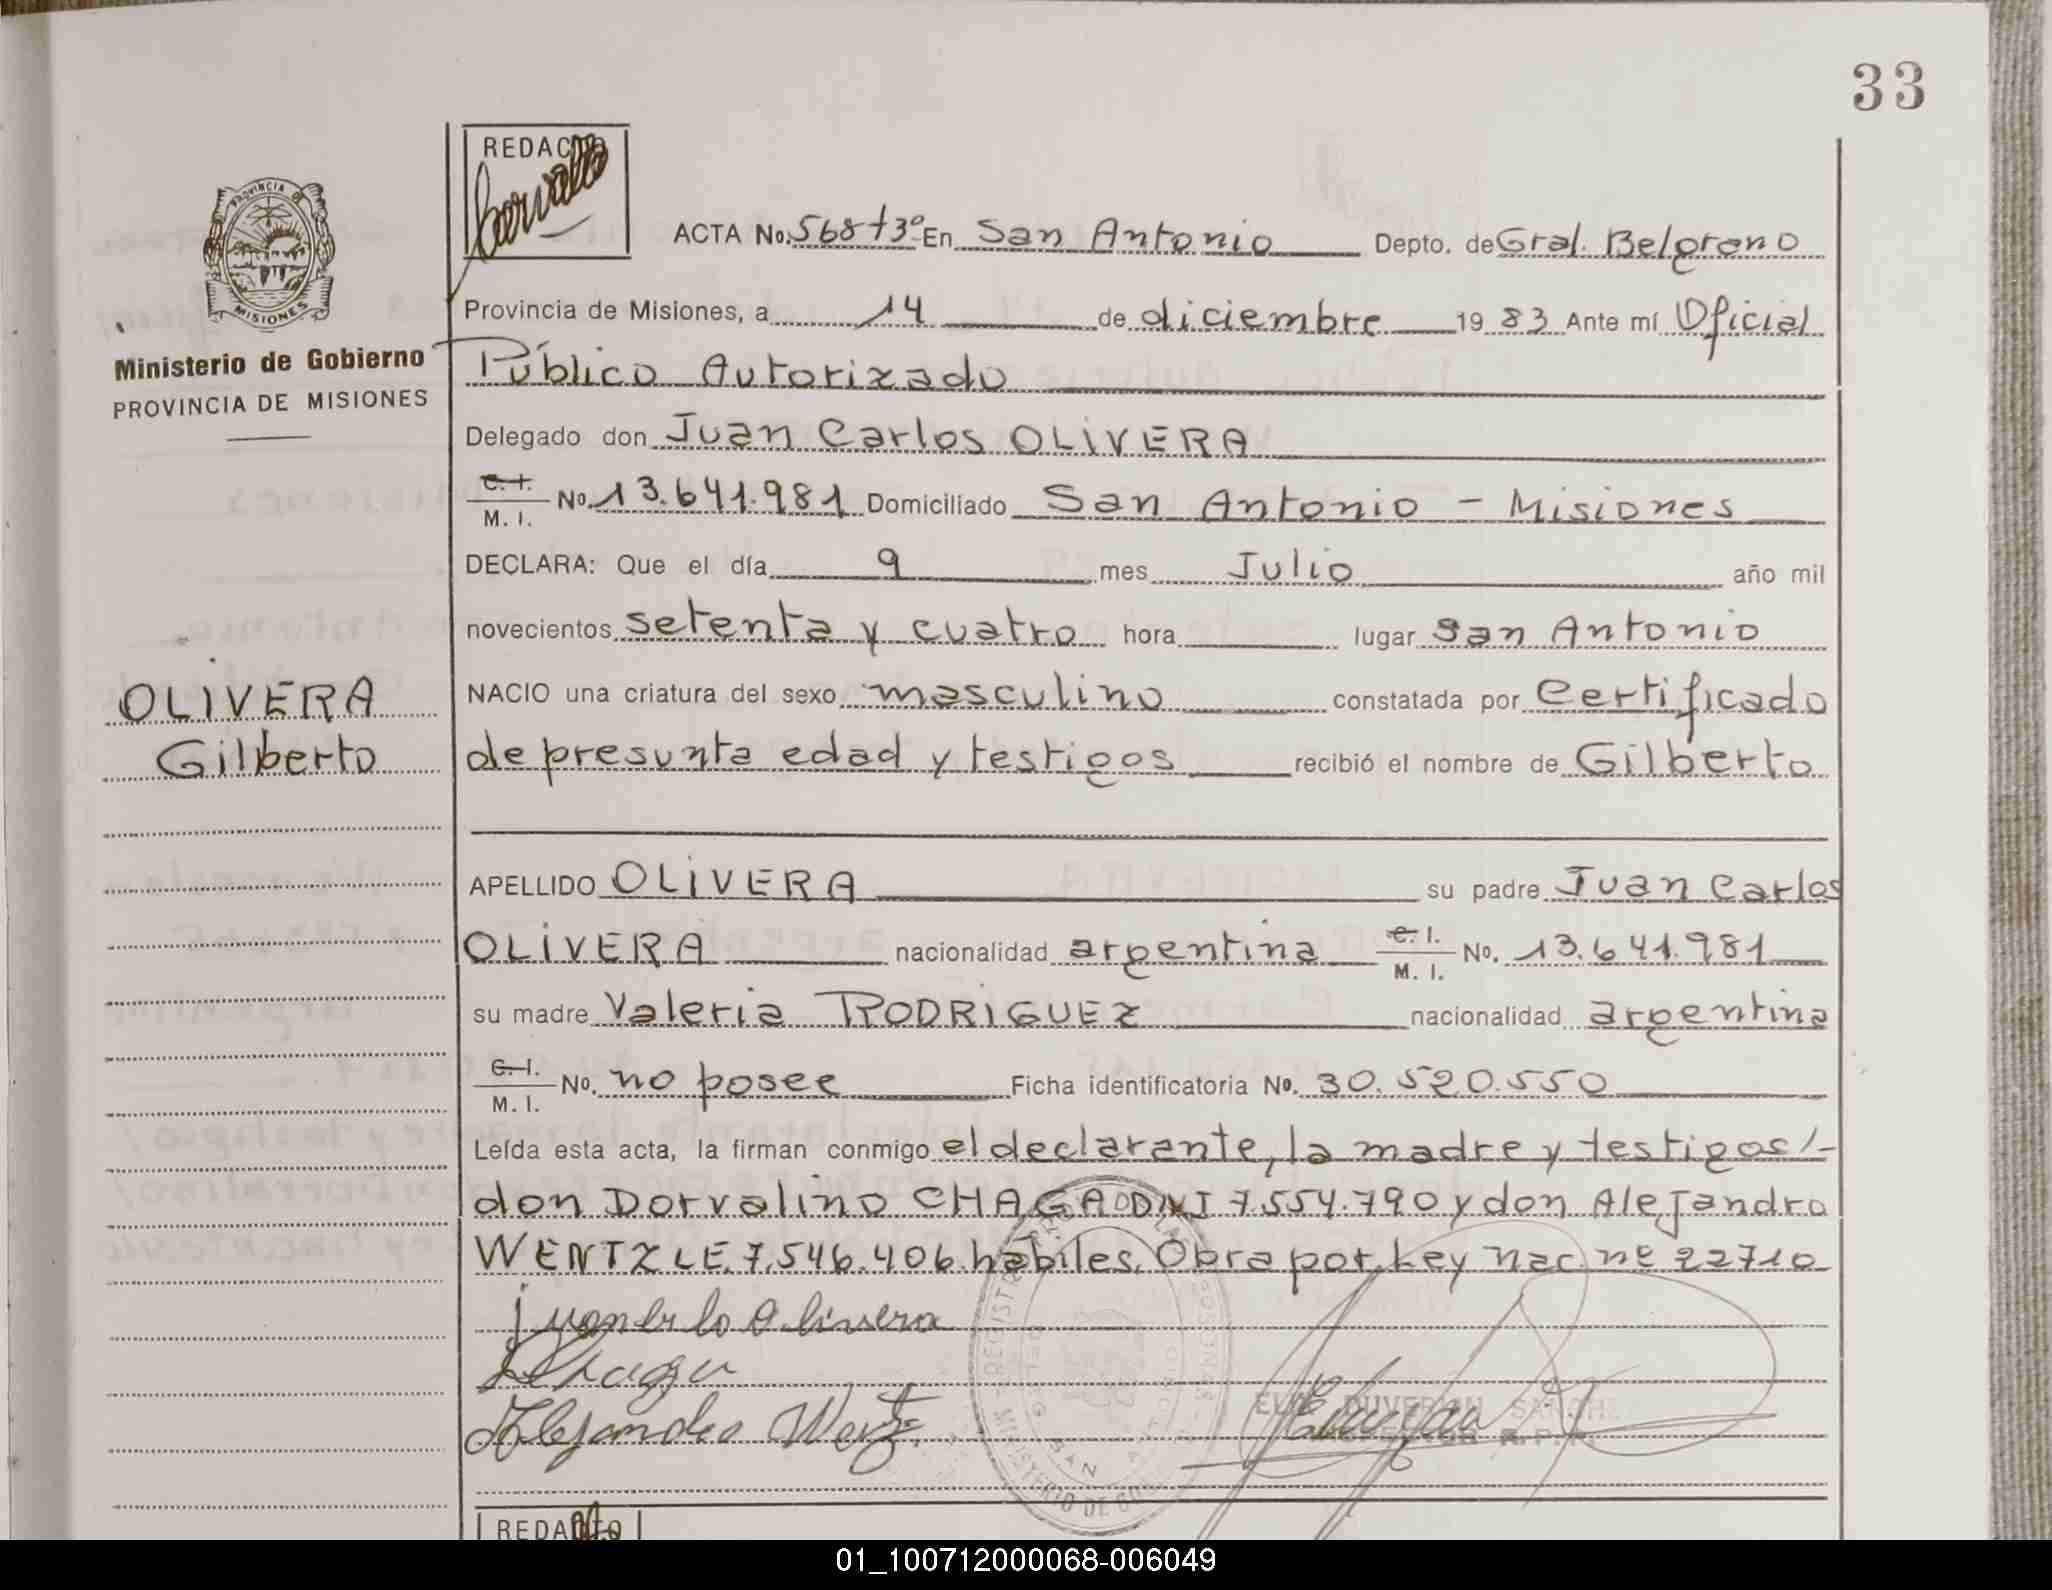 33
REDAC
PROVINCIA DE
MISIONES
Ministerio de Gobierno
PROVINCIA DE MISIONES
ACTA No. 56873º En San Antonio Depto. de Gral. Belgrano
Provincia de Misiones, a 14 de diciembre 19 83 Ante mí Oficial
Público Autorizado
Delegado don Juan Carlos OLIVERA
C. I. M. I. No. 13.641.981 Domiciliado San Antonio - Misiones
DECLARA: Que el día 9 mes Julio año mil
novecientos setenta y cuatro hora lugar San Antonio
OLIVERA
Gilberto
NACIO una criatura del sexo masculino constatada por certificado
de presunta edad y testigos recibió el nombre de Gilberto
APELLIDO OLIVERA su padre Juan Carlos
OLIVERA nacionalidad argentina C. I. M. I. No. 13.641.981
su madre Valeria RODRIGUEZ nacionalidad argentina
C. I. M. I. No. no posee Ficha identificatoria No. 30.520.550
Leída esta acta, la firman conmigo el declarante, la madre y testigos/-
don Dorvalino CHAGA DNI 7.554.790 y don Alejandro
WENTZ LE. 7.546.406 habiles. Obra por Ley nac nº 22710
Juan Carlo Olivera
Chaga
Alejandro Wentz
MINISTERIO DE
SAN ANTONIO
REDACTO
01_100712000068-006049